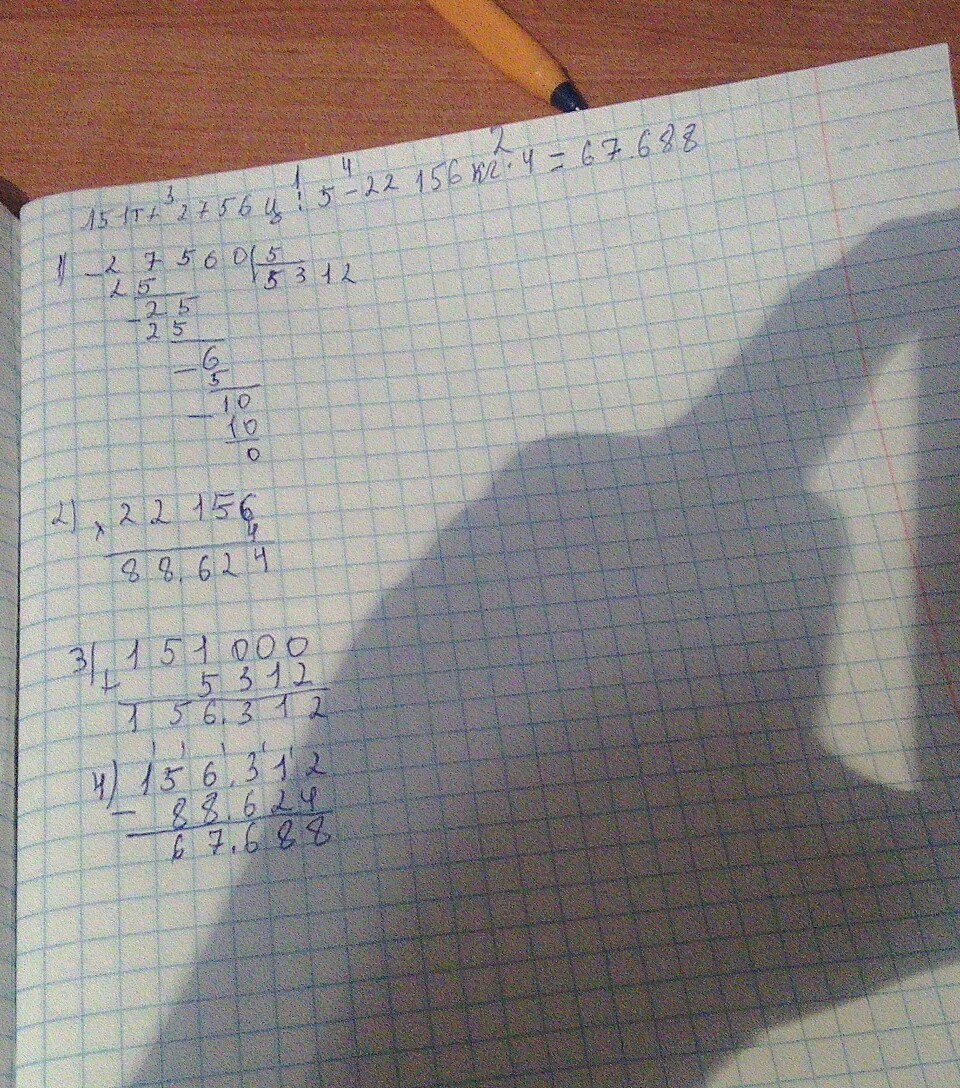 3 1 4 2
151т + 2756 ц : 5 - 22 156 кг · 4 = 67.688
1) - 27560 | 5
25 5312
- 25
25
- 6
5
- 10
10
0
2) × 22 156
4
88.624
3) + 151 000
5312
156.312
4) - 156.312
88.624
67.688